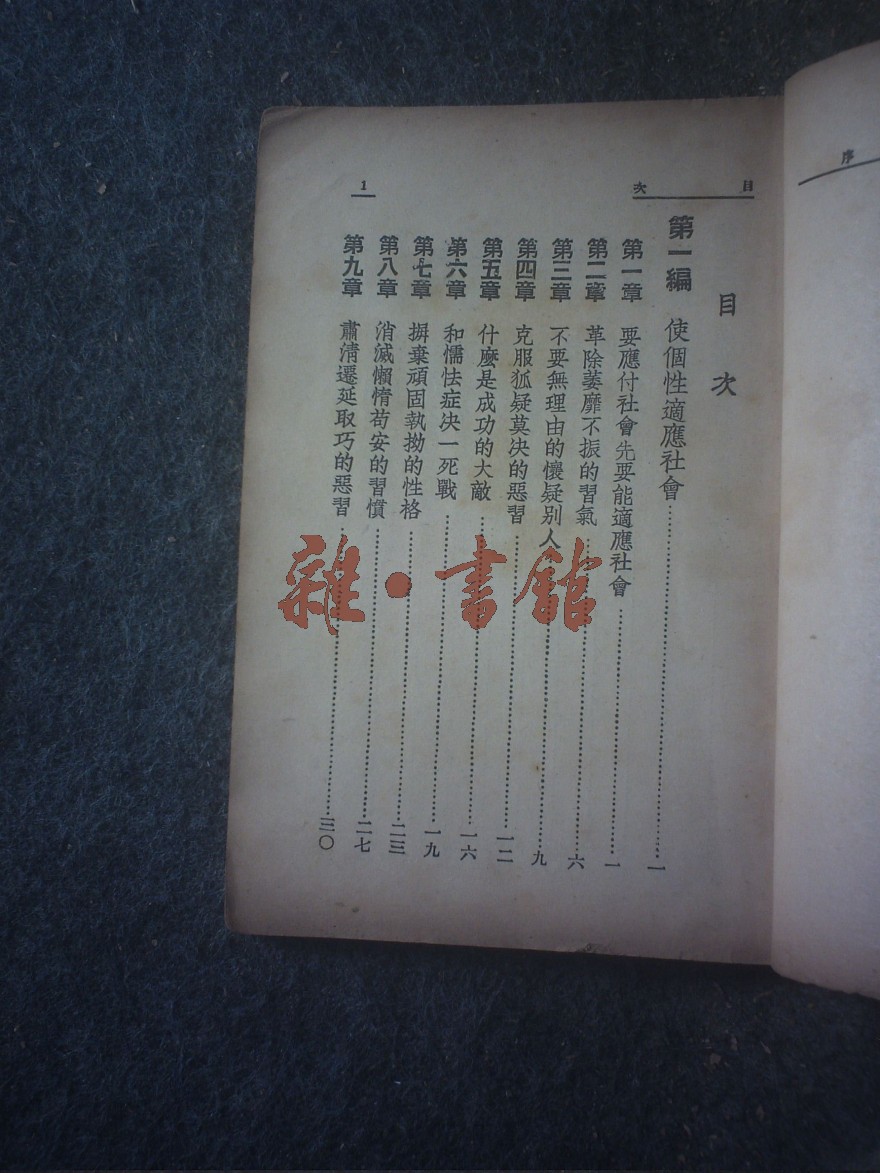 序
目次
1
目次
第一編 使個性適應社會……一
第一章 要應付社會先要能適應社會……一
第二章 革除萎靡不振的習氣……六
第三章 不要無理由的懷疑別人……九
第四章 克服狐疑莫決的惡習……一二
第五章 什麼是成功的大敵……一六
第六章 和懦怯症決一死戰……一九
第七章 摒棄頑固執拗的性格……二三
第八章 消滅懶惰苟安的習慣……二七
第九章 肅清遷延取巧的惡習……三〇
雜·書館